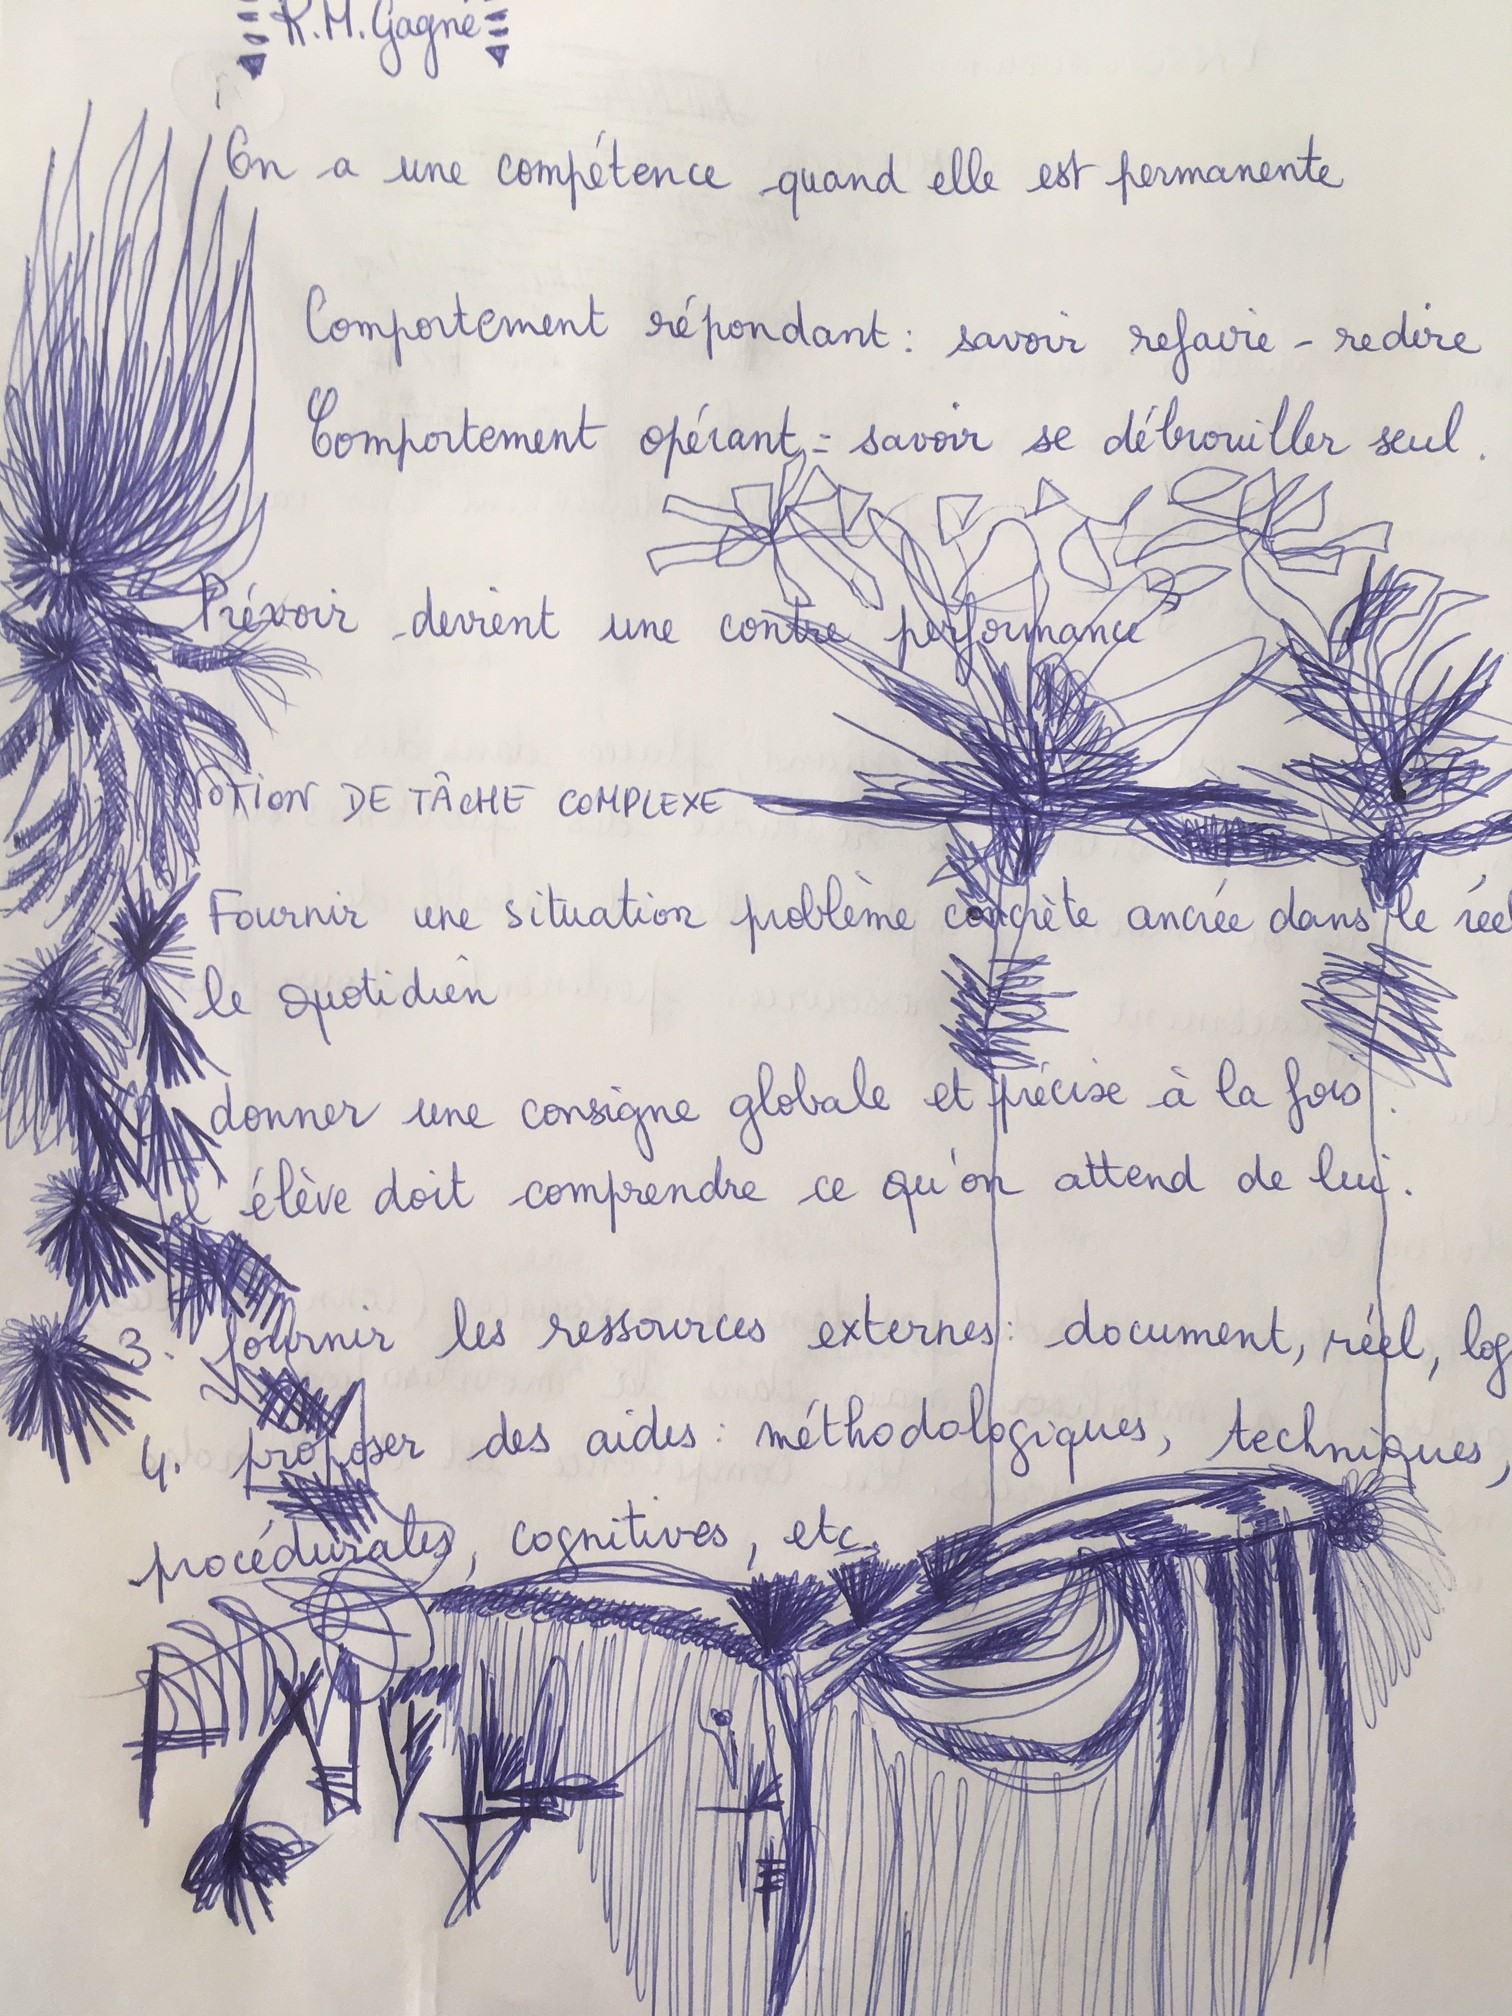 R.M. Gagné
On a une compétence quand elle est permanente
Comportement répondant : savoir refaire - redire
Comportement opérant = savoir se débrouiller seul.
Prévoir devient une contre performance
NOTION DE TÂCHE COMPLEXE
Fournir une situation problème concrète ancrée dans le réel
le quotidien
donner une consigne globale et précise à la fois.
l'élève doit comprendre ce qu'on attend de lui.
3. fournir les ressources externes : document, réel, log
4. proposer des aides : méthodologiques, techniques,
procédurales, cognitives, etc.